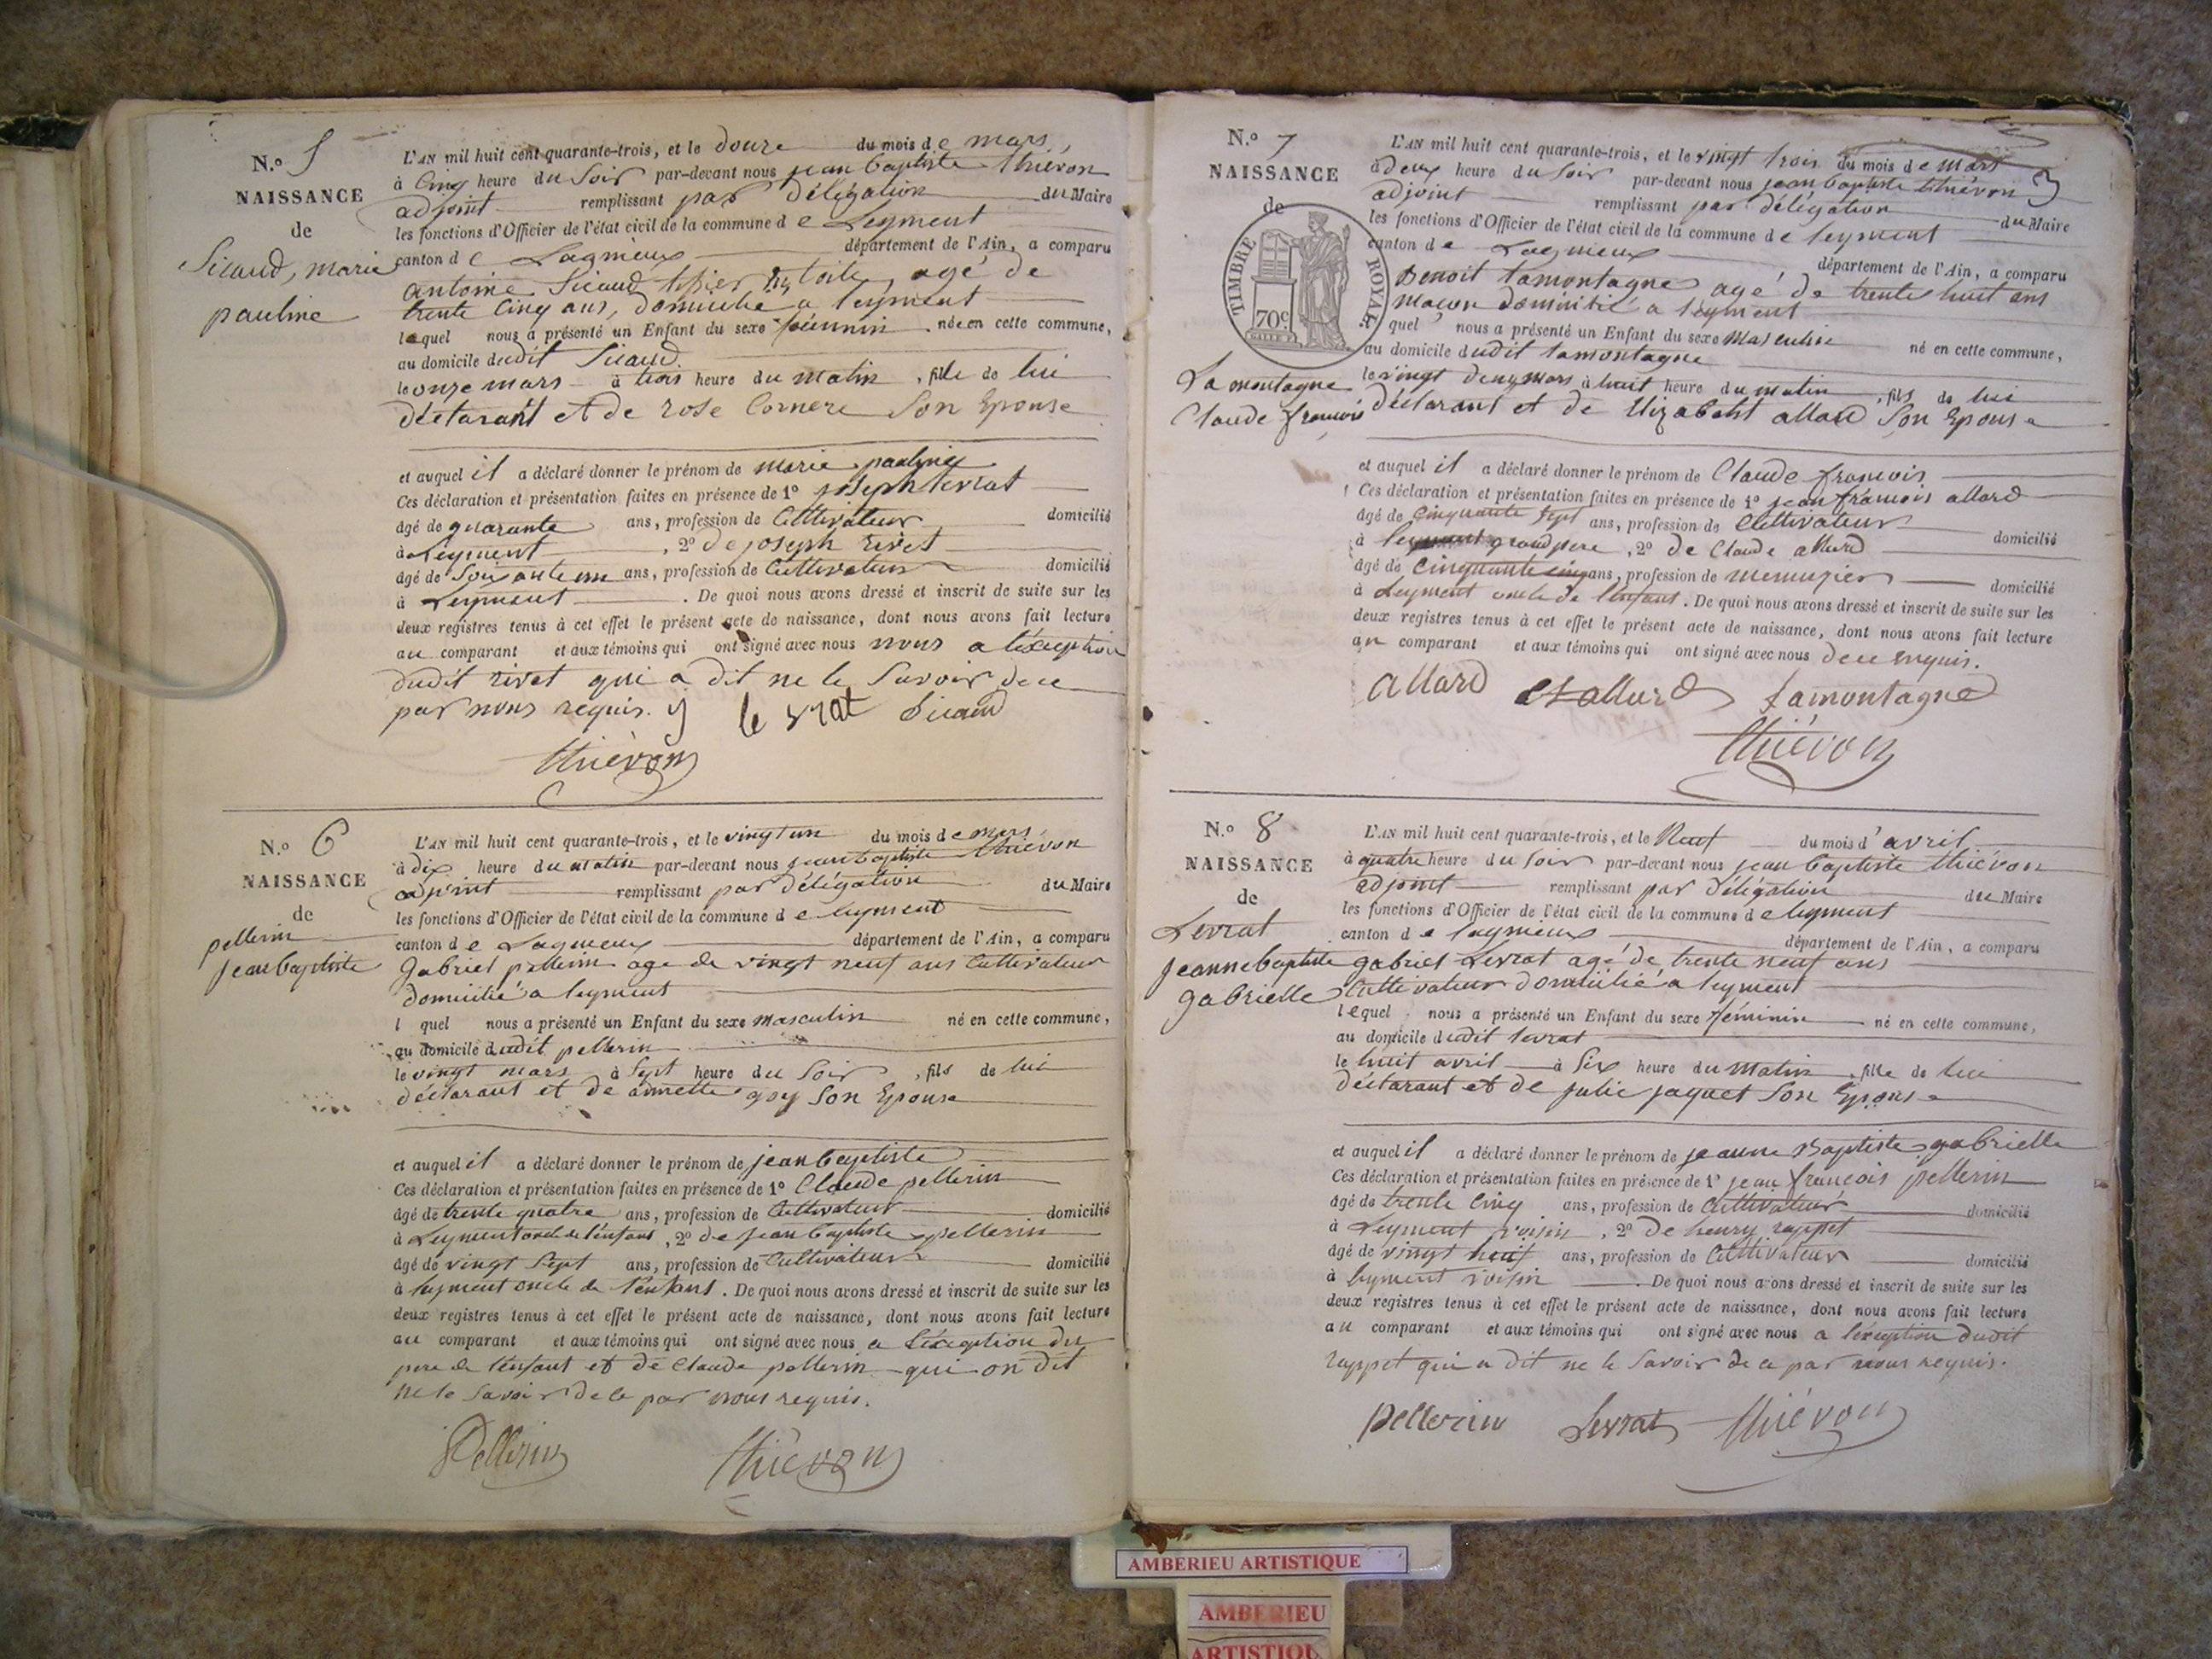 N.o 5
NAISSANCE
de
Sicaud, marie
pauline
L'AN mil huit cent quarante-trois, et le douze du mois de mars,
à Cinq heure du Soir par-devant nous jean baptiste thiévon
adjoint remplissant par délégation du Maire
les fonctions d'Officier de l'état civil de la commune de Leyment
canton de Lagnieux département de l'Ain, a comparu
antoine Sicaud tissier en toile, agé de
trente Cinq ans, domicilié a leyment
lequel nous a présenté un Enfant du sexe féminin née en cette commune,
au domicile dudit Sicaud.
le onze mars à trois heure du matin, fille de lui
déclarant et de rose Cornere Son Epouse
et auquel il a déclaré donner le prénom de marie pauline
Ces déclaration et présentation faites en présence de 1º joseph levrat
âgé de quarante ans, profession de Cultivateur domicilié
à Leyment, 2º de joseph rivet
âgé de Soixante un ans, profession de Cultivateur domicilié
à Leyment. De quoi nous avons dressé et inscrit de suite sur les
deux registres tenus à cet effet le présent acte de naissance, dont nous avons fait lecture
au comparant et aux témoins qui ont signé avec nous nous a l'éxception
dudit rivet qui a dit ne le Savoir de ce
par nous requis. le vrat Sicaud
thiévon
N.o 6
NAISSANCE
de
pellerin
jean baptiste
L'AN mil huit cent quarante-trois, et le vingt un du mois de mars,
à dix heure du matin par-devant nous jean baptiste thiévon
adjoint remplissant par délégation du Maire
les fonctions d'Officier de l'état civil de la commune de leyment
canton de Lagnieux département de l'Ain, a comparu
gabriel pellerin age de vingt neuf ans Cultivateur
domicilié a leyment
l quel nous a présenté un Enfant du sexe masculin né en cette commune,
au domicile dudit pellerin
le vingt mars à Sept heure du Soir, fils de lui
déclarant et de annette goy Son Epouse
et auquel il a déclaré donner le prénom de jean baptiste
Ces déclaration et présentation faites en présence de 1º Claude pellerin
âgé de trente quatre ans, profession de Cultivateur domicilié
à Leyment oncle de l'enfant, 2º de jean baptiste pellerin
âgé de vingt Sept ans, profession de Cultivateur domicilié
à leyment oncle de l'enfant. De quoi nous avons dressé et inscrit de suite sur les
deux registres tenus à cet effet le présent acte de naissance, dont nous avons fait lecture
au comparant et aux témoins qui ont signé avec nous a l'éxception du
pere de l'enfant et de Claude pellerin qui on dit
ne le Savoir de ce par nous requis.
Pellerin thiévon
N.o 7
NAISSANCE
de
TIMBRE ROYAL
70c
Lamontagne
Claude françois
L'AN mil huit cent quarante-trois, et le vingt trois du mois de mars
à deux heure du Soir par-devant nous jean baptiste thiévon 3
adjoint remplissant par délégation du Maire
les fonctions d'Officier de l'état civil de la commune de leyment
canton de Lagnieux département de l'Ain, a comparu
Benoit lamontagne agé de trente huit ans
maçon domicilié a leyment
quel nous a présenté un Enfant du sexe masculin né en cette commune,
au domicile dudit lamontagne
le vingt deux mars à huit heure du matin, fils de lui
déclarant et de Elizabeht allard Son Epouse
et auquel il a déclaré donner le prénom de Claude françois
Ces déclaration et présentation faites en présence de 1º jean françois allard
âgé de cinquante Sept ans, profession de Cultivateur domicilié
à grand pere, 2º de Claude allard
âgé de cinquante cinq ans, profession de menuzier domicilié
à Leyment oncle de l'enfant. De quoi nous avons dressé et inscrit de suite sur les
deux registres tenus à cet effet le présent acte de naissance, dont nous avons fait lecture
au comparant et aux témoins qui ont signé avec nous de ce requis.
allard allard Lamontagne
thiévon
N.o 8
NAISSANCE
de
Levrat
jeanne baptiste
gabrielle
L'AN mil huit cent quarante-trois, et le Neuf du mois d'avril
à quatre heure du Soir par-devant nous jean baptiste thiévon
adjoint remplissant par délégation du Maire
les fonctions d'Officier de l'état civil de la commune de leyment
canton de lagnieux département de l'Ain, a comparu
gabriel Levrat agé de trente neuf ans
Cultivateur domicilié a leyment
lequel nous a présenté un Enfant du sexe féminin né en cette commune,
au domicile dudit levrat
le huit avril à Six heure du matin, fille de lui
déclarant et de julie jaquet Son Epouse
et auquel il a déclaré donner le prénom de jeanne Baptiste gabrielle
Ces déclaration et présentation faites en présence de 1º jean françois pellerin
âgé de trente Cinq ans, profession de Cultivateur domicilié
à Leyment voisin, 2º de henry rappet
âgé de vingt neuf ans, profession de Cultivateur domicilié
à leyment voisin. De quoi nous avons dressé et inscrit de suite sur les
deux registres tenus à cet effet le présent acte de naissance, dont nous avons fait lecture
au comparant et aux témoins qui ont signé avec nous a l'éxception dudit
rappet qui a dit ne le Savoir de ce par nous requis.
Pellerin Levrat thiévon
AMBERIEU ARTISTIQUE
AMBERIEU
ARTISTIQU